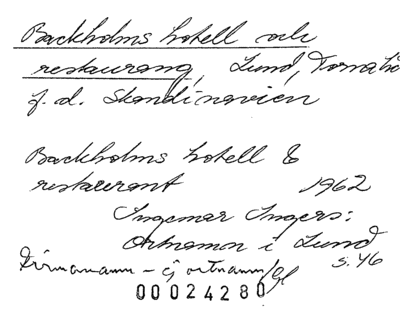 Backholms hotell och
restaurang, Lund, Torna hd
f.d. Skandinavien
Backholms hotell &
restaurant 1962
Ingemar Ingers:
Ortnamn i Lund
s. 46
Firmanamn - ej ortnamn/
00024280